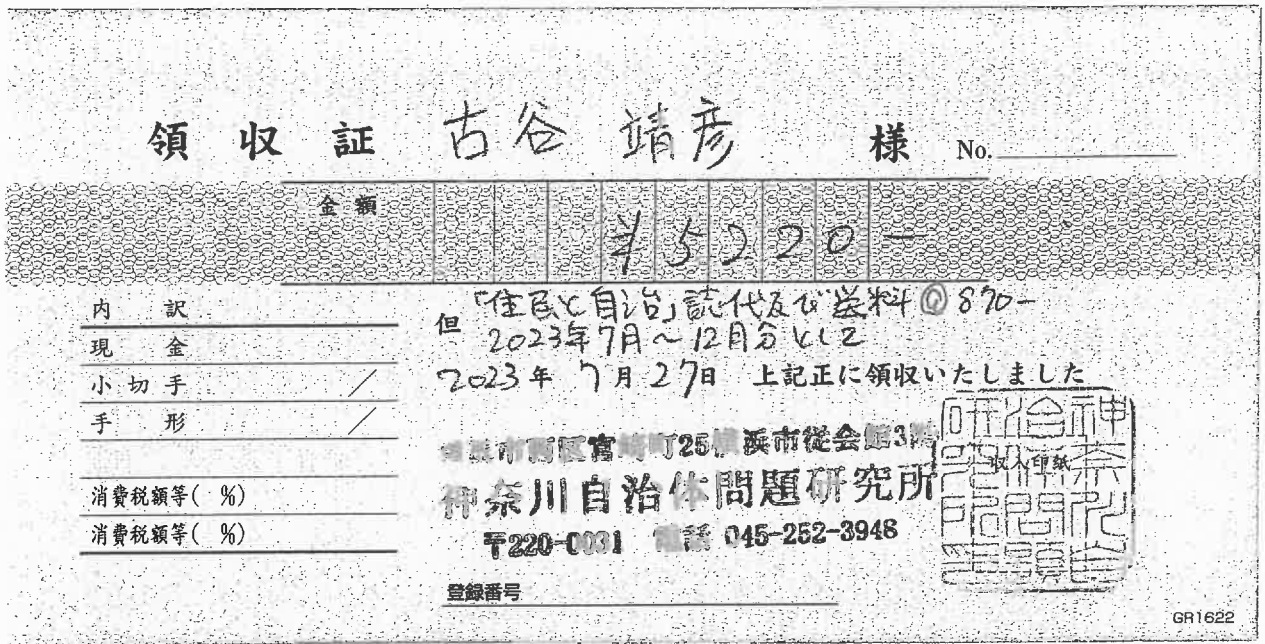 領収証 古谷 靖彦 様 No.
金額 ¥5220-
内訳
現金
小切手 /
手形 /
消費税額等( %)
消費税額等( %)
但 「住民と自治」誌代及び送料@870-
2023年7月~12月分として
2023年7月27日 上記正に領収いたしました
横浜市西区宮崎町25横浜市従会館3階
神奈川自治体問題研究所
〒220-0031 電話 045-252-3948
収入印紙
登録番号
GR1622